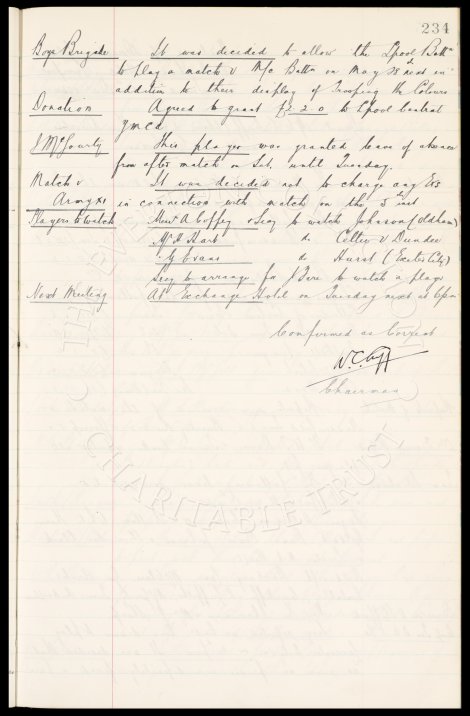 234
Boys Brigade It was decided to allow the Lpool Battn
to play a match v M/c Battn on May next in
addition to their display of Trooping the Colours
Donation Agreed to grant £2.2.0 to Lpool Central
Y M C A
J McGourty This player was granted leave of absence
from after match on Sat. until Tuesday.
Match v It was decided not to charge any
Army XI in connection with match on the 5th inst
Players to watch Messrs A Coffey & Secy to watch Johnson (Oldham)
Mr H Hart do. Celtic v Dundee
" G Evans do Hurst (Exeter City)
Secy to arrange for J Fare to watch a player
Next Meeting At Exchange Hotel on Tuesday next at 6pm
Confirmed as Correct
W.C. Cuff
Chairman
THE EVE
CHARITABLE TRUST